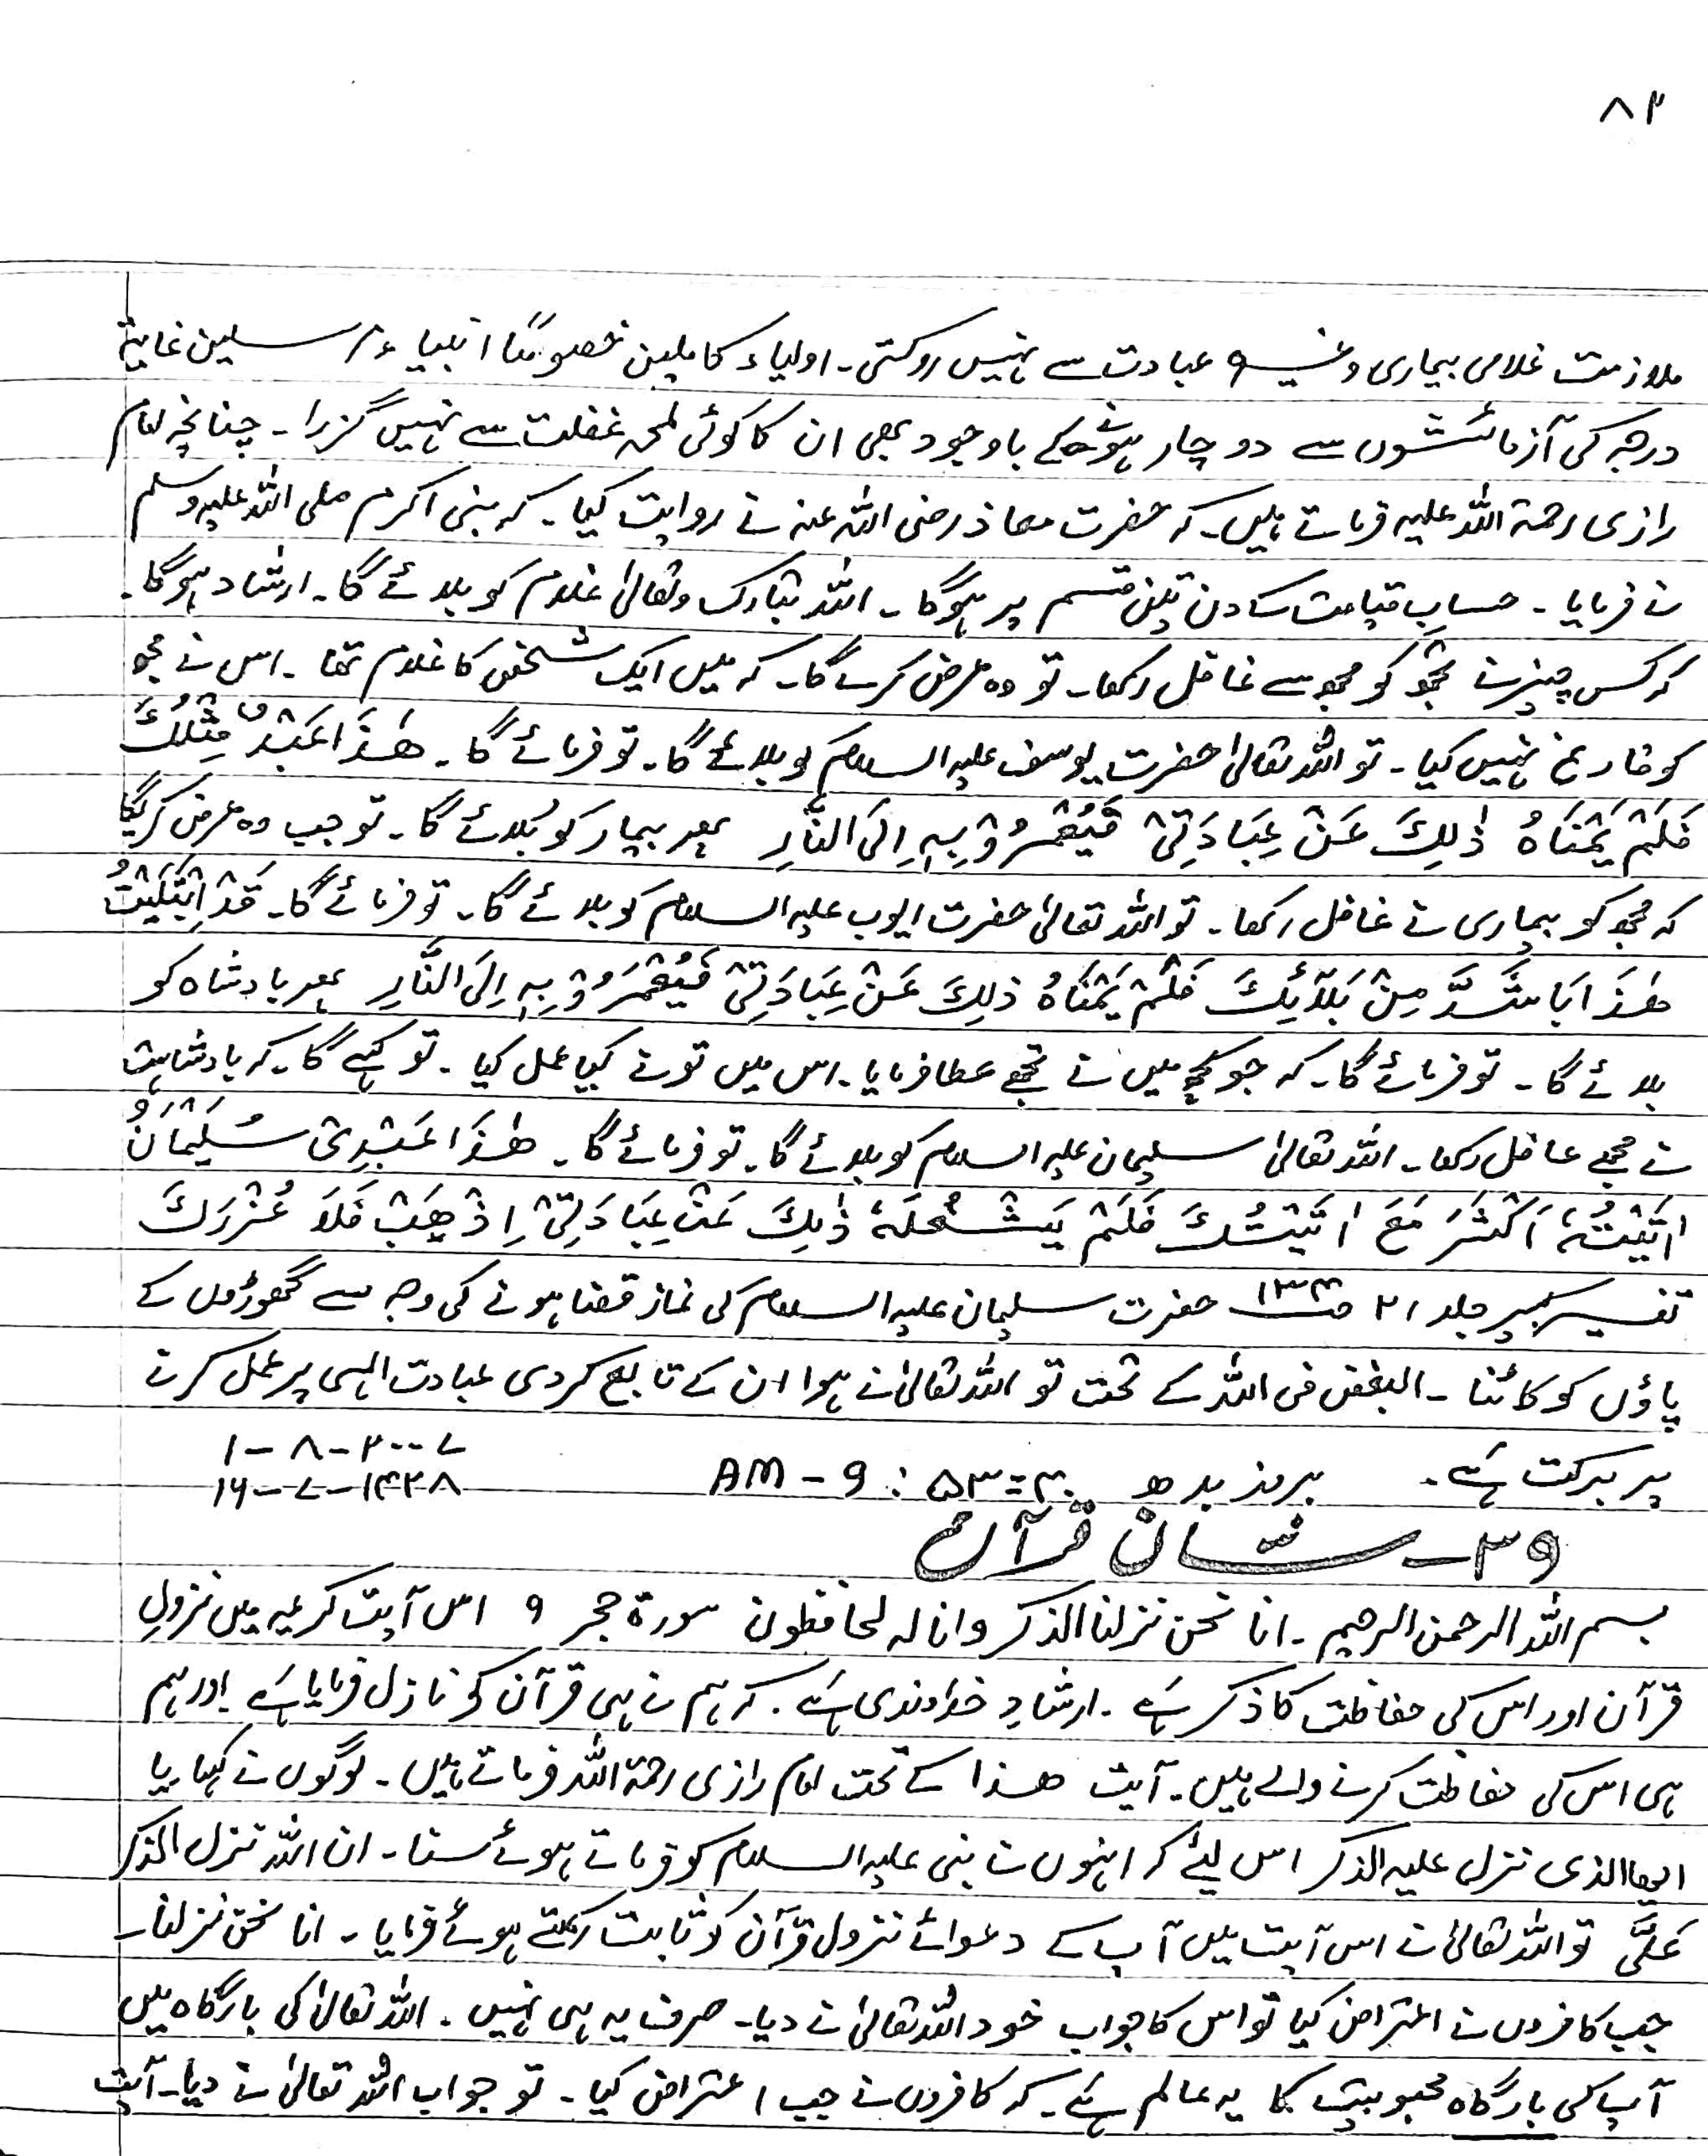 ۸۲
ملازمت غلامی بیماری وغیرہ عبادت سے نہیں روکتی۔ اولیاء کاملین خصوصًا انبیاء و مرسلین غایۃ
درجہ کی آزمائشوں سے دو چار ہونے کے باوجود بھی ان کا کوئی لمحہ غفلت سے نہیں گزرا۔ چنانچہ امام
رازی رحمۃ اللہ علیہ فرماتے ہیں۔ کہ حضرت معاذ رضی اللہ عنہ نے روایت کیا۔ کہ نبی اکرم صلی اللہ علیہ وسلم
نے فرمایا۔ حسابِ قیامت کے دن تین قسم پر ہوگا۔ اللہ تبارک وتعالیٰ غلام کو بلائے گا۔ ارشاد ہوگا۔
کہ کس چیز نے تجھ کو مجھ سے غافل رکھا۔ تو وہ عرض کرے گا۔ کہ میں ایک شخص کا غلام تھا۔ اس نے مجھ
کو فارغ نہیں کیا۔ تو اللہ تعالیٰ حضرت یوسف علیہ السلام کو بلائے گا۔ تو فرمائے گا۔ ھٰذَا عَبْدٌ مِّثْلُكَ
فَلَمْ يَمْنَاهُ ذٰلِكَ عَنْ عِبَادَتِیْ فَيُؤْمَرُ بِهٖ اِلَی النَّارِ پھر بیمار کو بُلائے گا۔ تو جب وہ عرض کریگا
کہ مجھ کو بیماری نے غافل رکھا۔ تو اللہ تعالیٰ حضرت ایوب علیہ السلام کو بلائے گا۔ تو فرمائے گا۔ قَدْ اِبْتَلَيْتُ
ھٰذَا بَاشَدَّ مِنْ بَلَآئِكَ فَلَمْ يَمْنَاهُ ذٰلِكَ عَنْ عِبَادَتِیْ فَيُؤْمَرُ بِهٖ اِلَی النَّارِ پھر بادشاہ کو
بلائے گا۔ تو فرمائے گا۔ کہ جو کچھ میں نے تجھے عطا فرمایا۔ اس میں تو نے کیا عمل کیا۔ تو کہے گا۔ کہ بادشاہت
نے مجھے غافل رکھا۔ اللہ تعالیٰ سلیمان علیہ السلام کو بلائے گا۔ تو فرمائے گا۔ ھٰذَا عَبْدِیْ سُلَيْمَانُ
اٰتَيْتُهٗ اَكْثَرَ مَعَ اٰتَيْتُكَ فَلَمْ يَشْغُلْهُ ذٰلِكَ عَنْ عِبَادَتِیْ اِذْھَبْ فَلَا عُذْرَلَكَ
تفسیر کبیر جلد ۲۱ صـ ۱۳۴ حضرت سلیمان علیہ السلام کی نماز قضا ہونے کی وجہ سے گھوڑوں کے
پاؤں کو کاٹنا۔ البغض فی اللہ کے تحت تو اللہ تعالیٰ نے ہوا ان کے تابع کردی عبادت الہی پر عمل کرنے
پر برکت ہَے۔ بروز بدھ ۳۰ = ۵۳ : ۹ - AM ۱-۸-۲۰۰۷
۱۶-۷-۱۴۲۸
۳۹ - شان قرآن
بسم اللہ الرحمن الرحیم۔ انا نحن نزلنا الذکر وانا لہ لحافظون سورۃ حجر ۹ اس آیت کریمہ میں نزولِ
قرآن اور اس کی حفاظت کا ذکر ہَے۔ ارشادِ خداوندی ہَے۔ کہ ہم نے ہی قرآن کو نازل فرمایا ہَے اور ہم
ہی اس کی حفاظت کرنے والے ہیں۔ آیت ھذا کے تحت امام رازی رحمۃ اللہ فرماتے ہیں۔ لوگوں نے کہا یا
ایھا الذی نزل علیہ الذکر اس لیئے کہ انہوں نے نبی علیہ السلام کو فرماتے ہوئے سنا۔ ان اللہ نزل الذکر
عَلَیَّ تو اللہ تعالیٰ نے اس آیت میں آپ کے دعوائے نزول قرآن کو ثابت رکھتے ہوئے فرمایا۔ انا نحن نزلنا۔
جب کافروں نے اعتراض کیا تو اس کا جواب خود اللہ تعالیٰ نے دیا۔ صرف یہ ہی نہیں۔ اللہ تعالیٰ کی بارگاہ میں
آپ کی بارگاہ محبوبیت کا یہ عالم ہَے۔ کہ کافروں نے جب اعتراض کیا۔ تو جواب اللہ تعالیٰ نے دیا۔ آیت